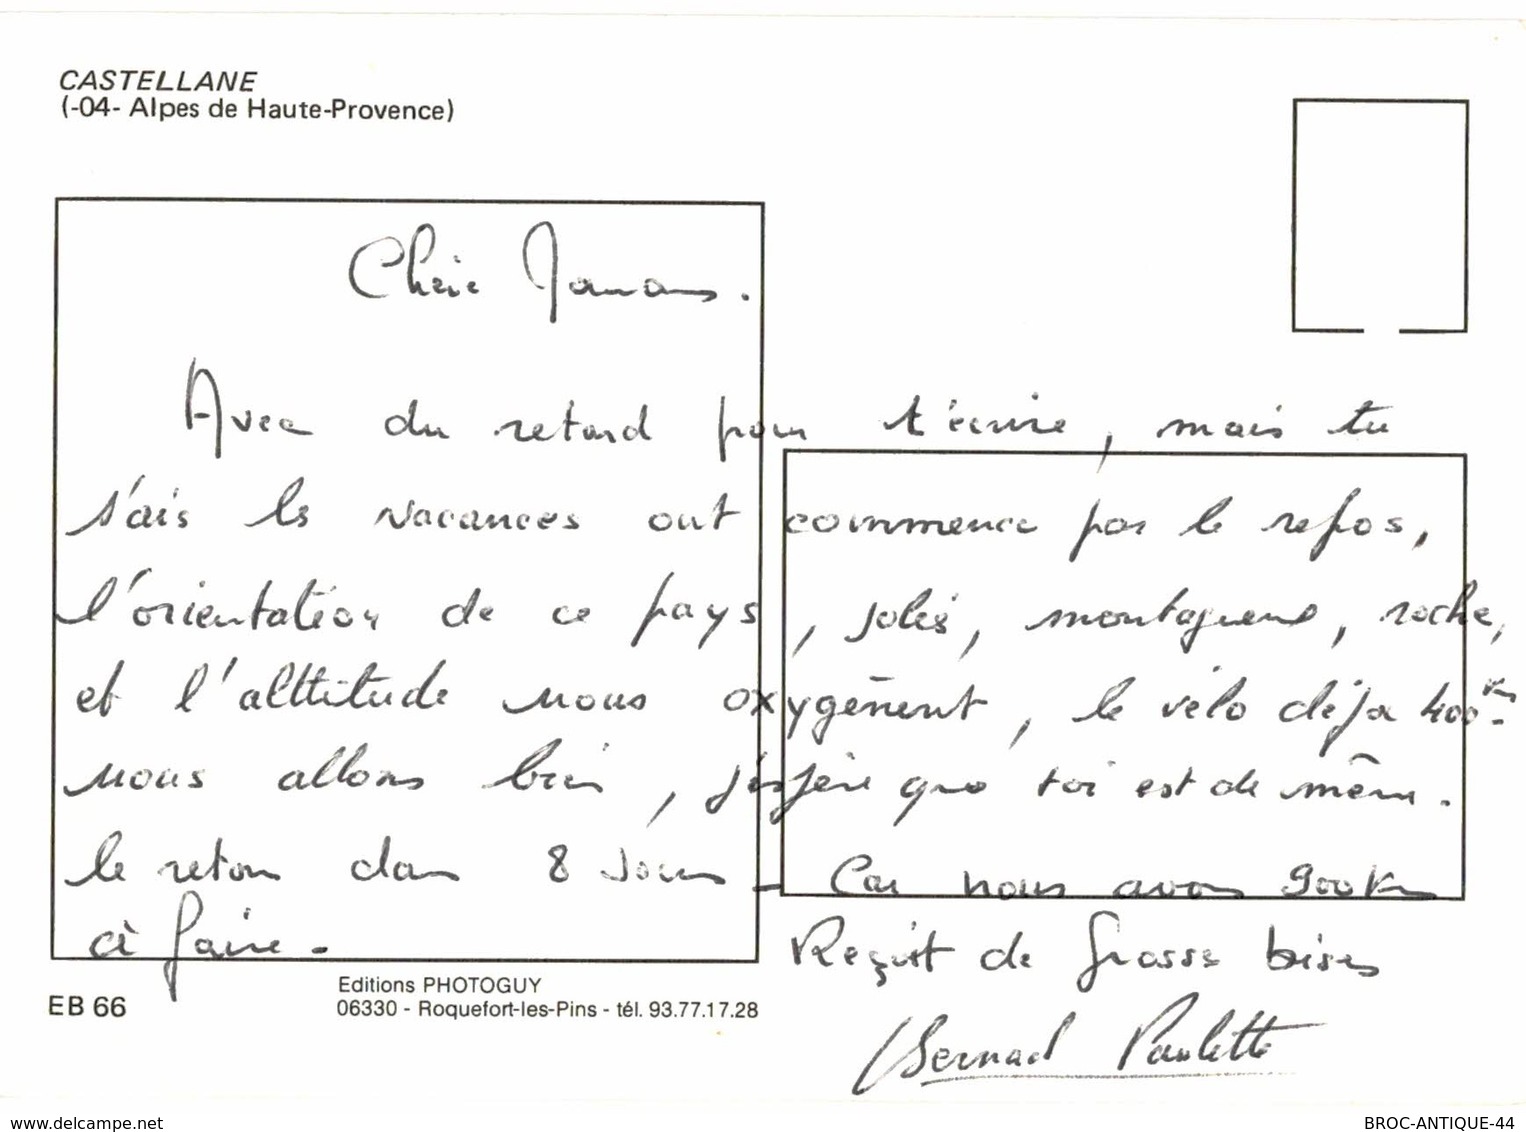 CASTELLANE
(-04- Alpes de Haute-Provence)
Chère Maman.
Avec du retard pour t'écrire, mais tu
s'ais les vacances ont commence par le repos,
l'orientation de ce pays, jolis, montagneux, roche,
et l'alttitude nous oxygènent, le vélo déja 400 km.
nous allons bien, j'espère que toi est de même.
le retour dans 8 jours - Car nous avons 900 Km
à faire.
Reçoit de grosses bises
Bernard Paulette
EB 66
Editions PHOTOGUY
06330 - Roquefort-les-Pins - tél. 93.77.17.28
www.delcampe.net
BROC-ANTIQUE-44